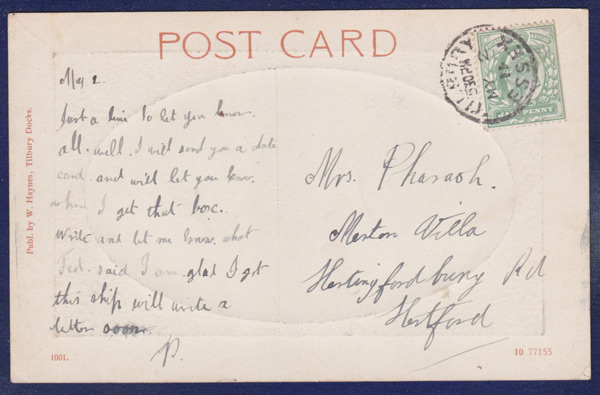 POST CARD
May 2.
Just a line to let you know
all well. I will send you a date
card and will let you know
when I get that box.
Write and let me know what
Ted said I am glad I got
this ship will write a
letter soon.
P.
Mrs. Pharaoh.
Merton Villa
Hertingfordbury Rd
Hertford
Publ. by W. Haynes, Tilbury Docks.
1001.
10 77155
TILBURY
ESSEX
PENNY